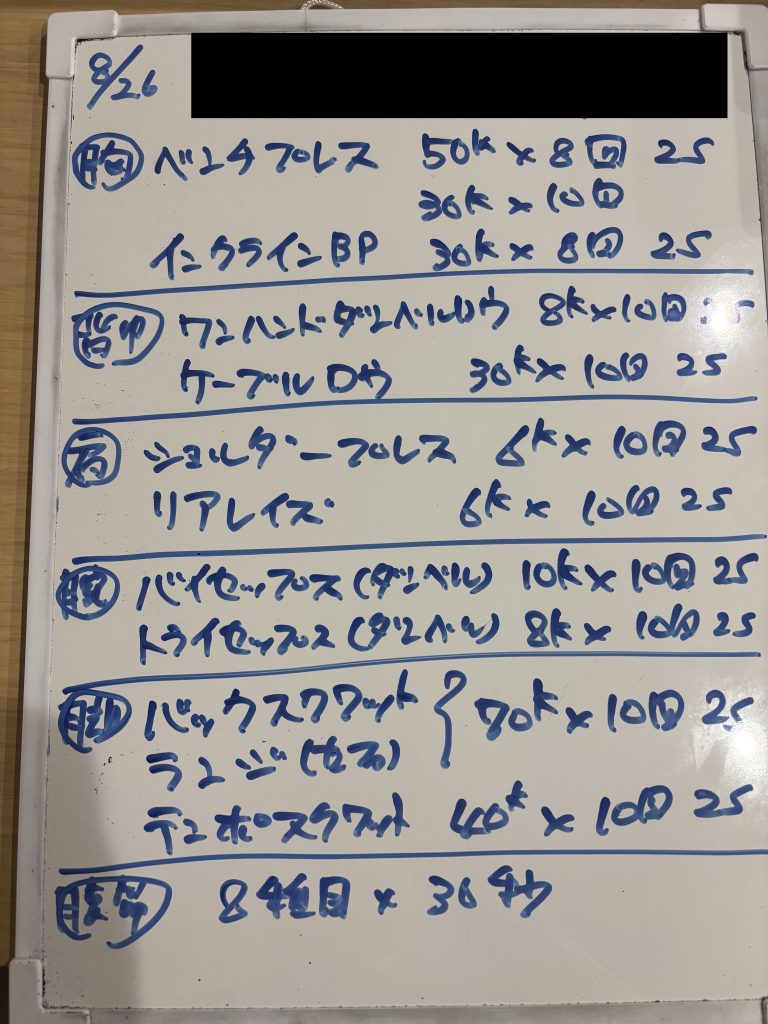 8/26
胸 ベンチプレス 50k × 8回 2S
30k × 10回
インクラインBP 30k × 8回 2S
背中 ワンハンドダンベルロウ 8k×10回 2S
ケーブルロウ 30k× 10回 2S
肩 ショルダープレス 6k× 10回 2S
リアレイズ 6k × 10回 2S
腕 バイセップス(ダンベル) 10k× 10回 2S
トライセップス(ダンベル) 8k × 10回 2S
脚 バックスクワット } 70k × 10回 2S
ランジ(セブ)
テンポスクワット 40k × 10回 2S
腹筋 8種目 × 30秒